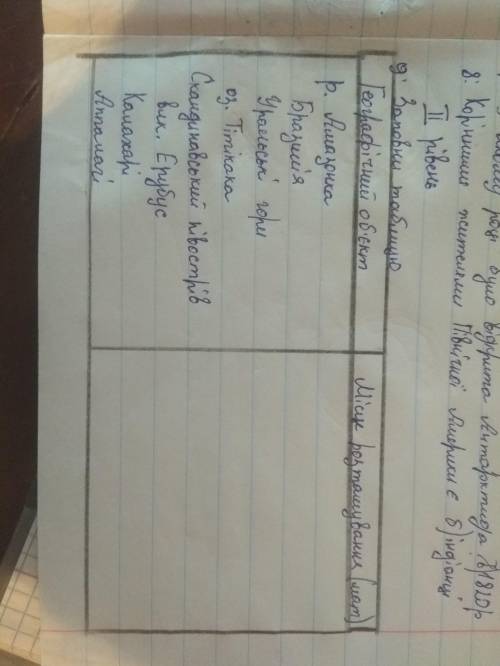 році було відкрита Антарктида б)1820р
8. Корінними жителями Північної Америки є б)індіанці
II рівень
9. Заповни таблицю
Географічний об'єкт Місце розташування (мат)
р. Амазонка
Бразилія
Уральські гори
оз. Тітікака
Скандинавський півострів
вул. Ерубус
Калахарі
Аппалачі